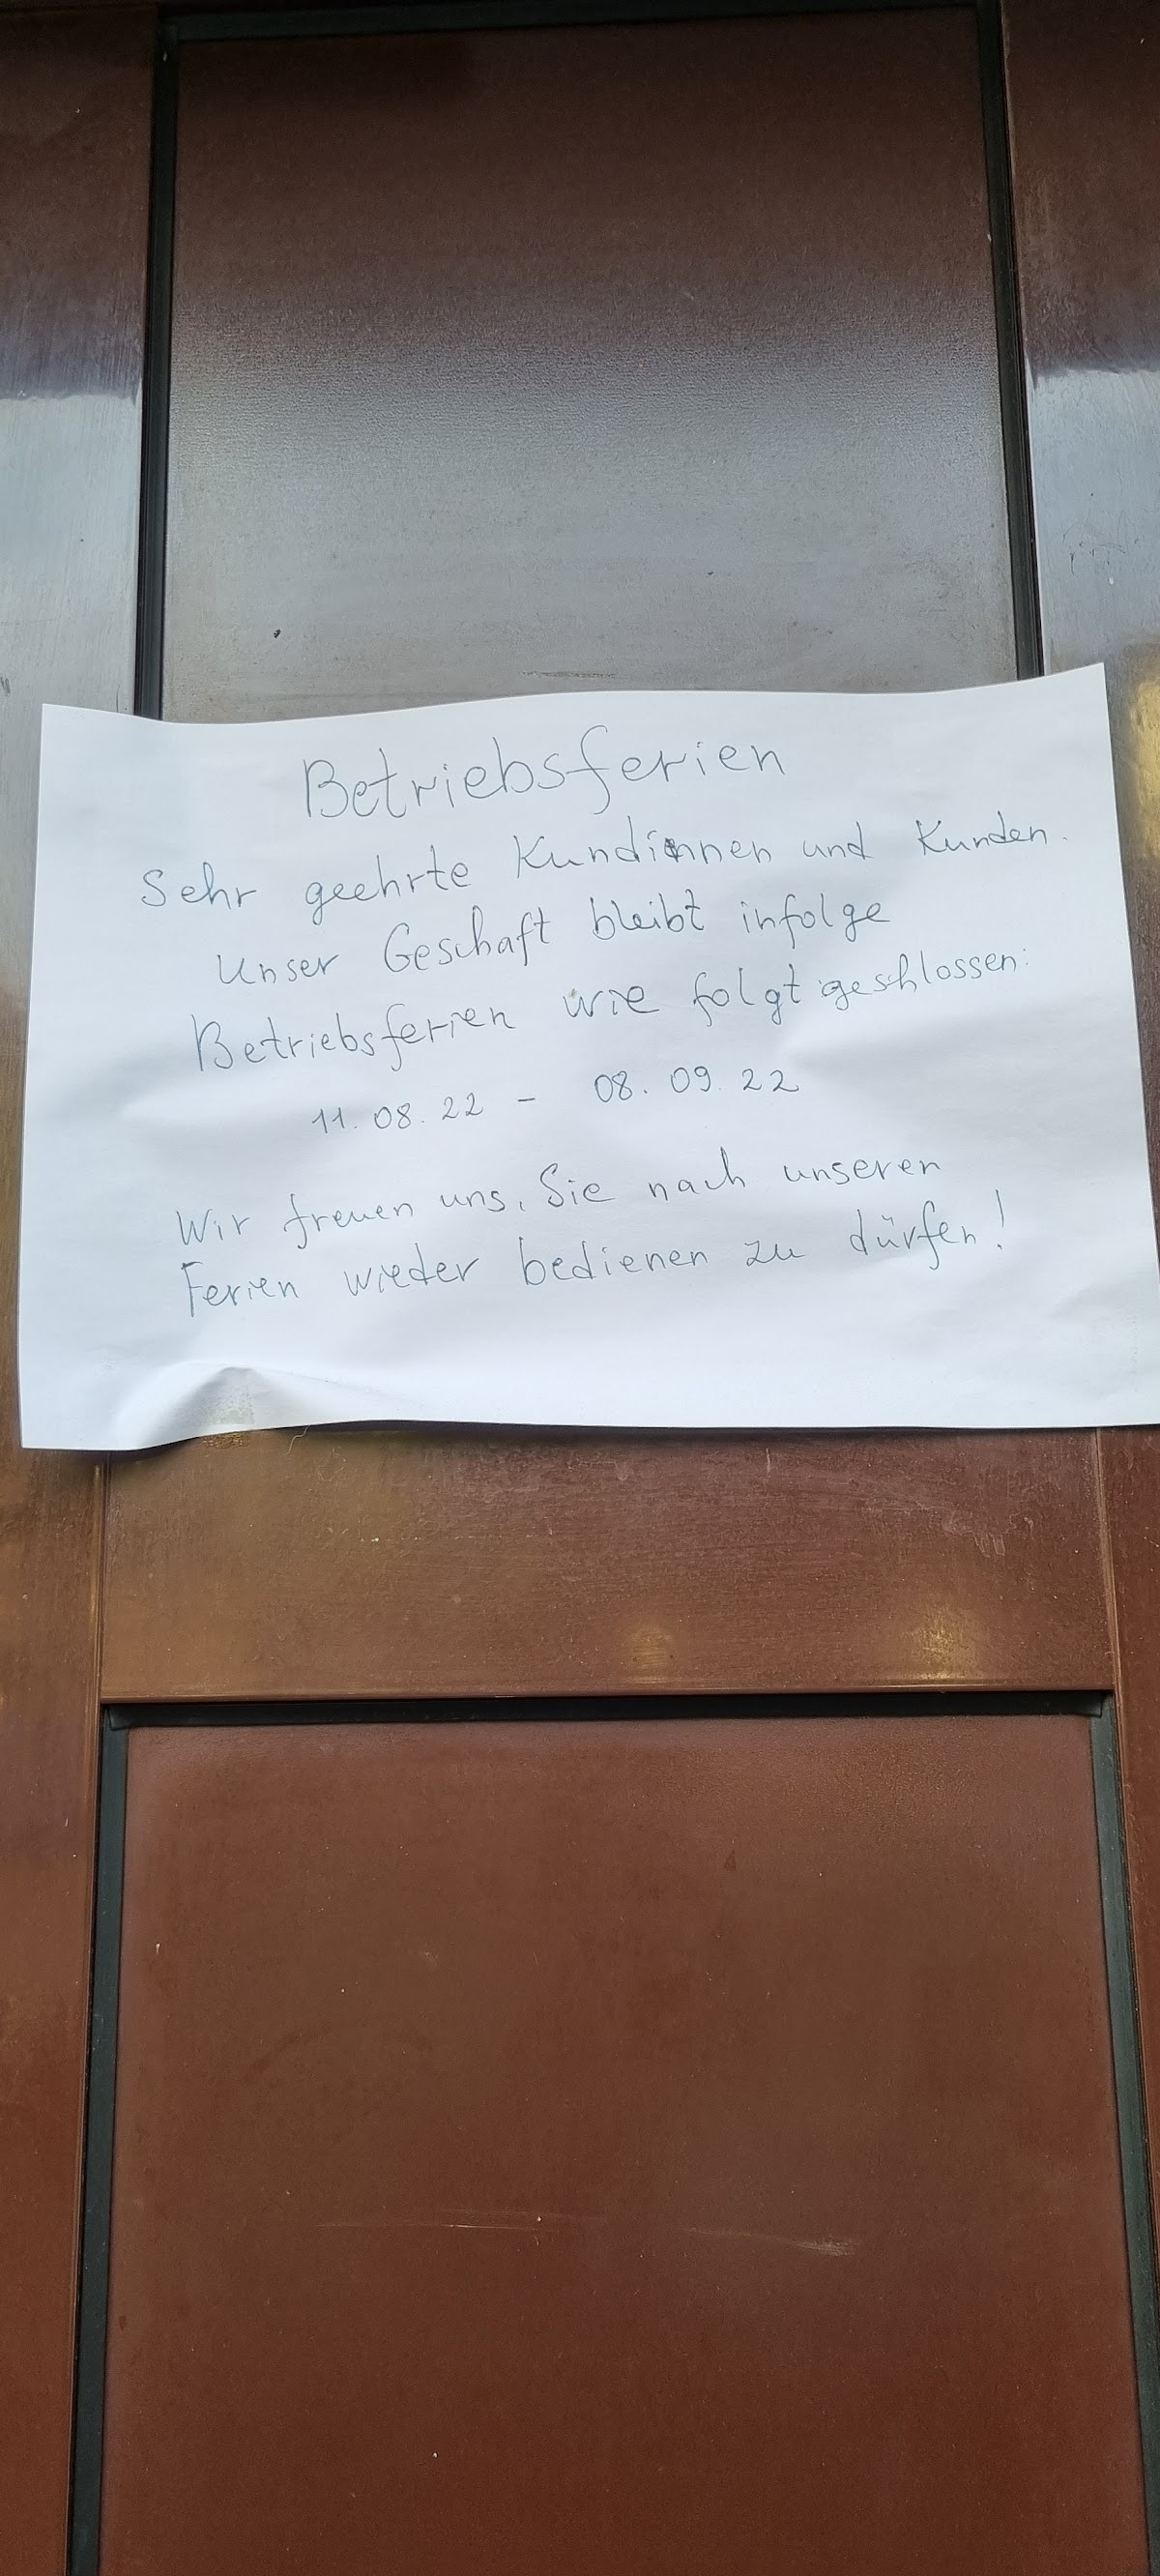 Betriebsferien
Sehr geehrte Kundinnen und Kunden.
Unser Geschaft bleibt infolge
Betriebsferien wie folgt geschlossen:
11.08.22 - 08.09.22
Wir freuen uns, Sie nach unseren
Ferien wieder bedienen zu dürfen!